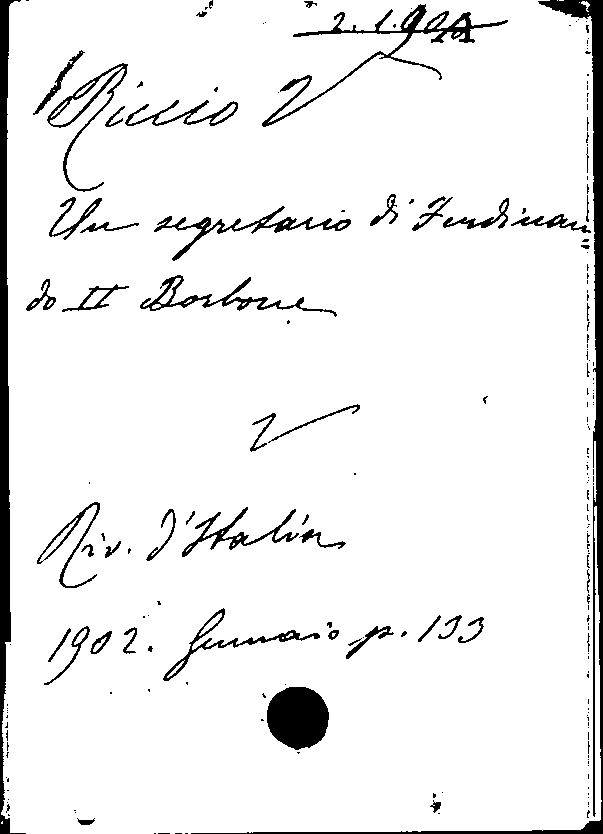 Riccio V
Un segretario di Ferdinan=
do II Borbone
V
Riv. d'Italia
1902. Gennaio p. 133